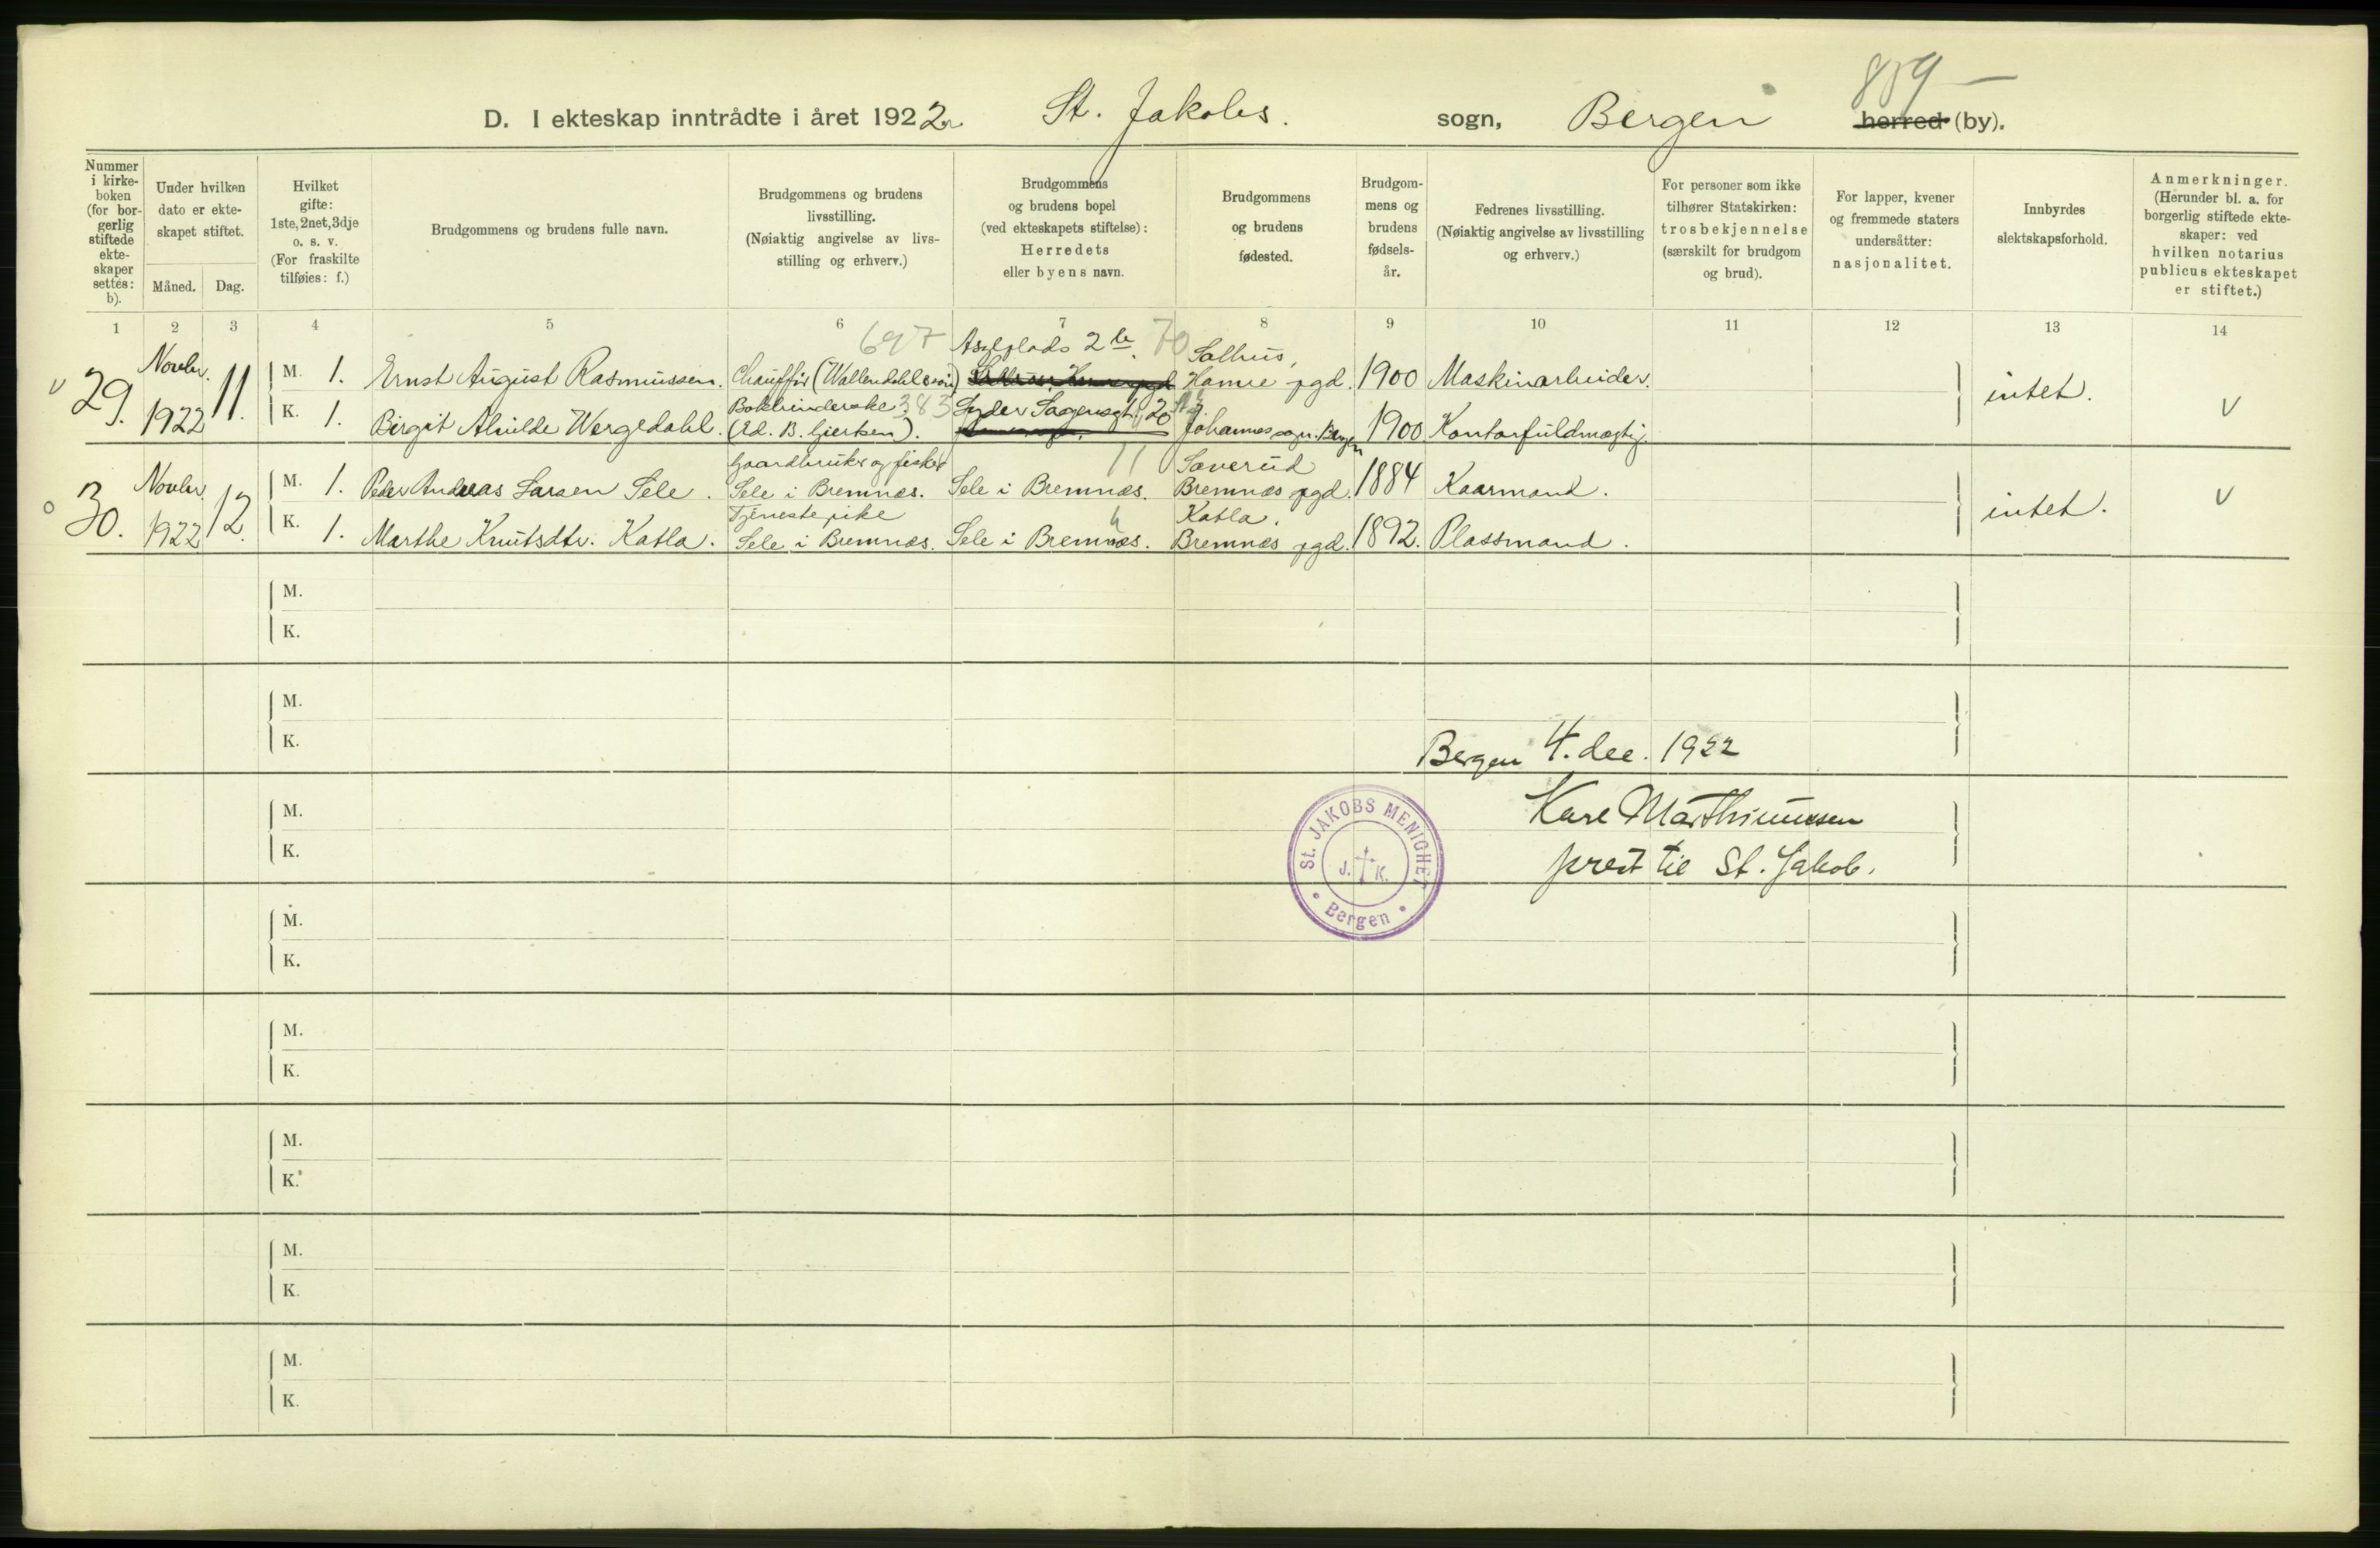 859 —
D. I ekteskap inntrådte i året 1922 St. Jakobs. sogn, Bergen herred (by).
Nummer i kirke-boken (for bor-gerlig stiftede ekte-skaper settes: b).
Under hvilken dato er ekte-skapet stiftet.
Måned. Dag.
Hvilket gifte: 1ste, 2net, 3dje o. s. v. (For fraskilte tilføies: f.)
Brudgommens og brudens fulle navn.
Brudgommens og brudens livsstilling. (Nøiaktig angivelse av livs-stilling og erhverv.)
Brudgommens og brudens bopel (ved ekteskapets stiftelse): Herredets eller byens navn.
Brudgommens og brudens fødested.
Brudgom-mens og brudens fødsels-år.
Fedrenes livsstilling. (Nøiaktig angivelse av livsstilling og erhverv.)
For personer som ikke tilhører Statskirken: trosbekjennelse (særskilt for brudgom og brud).
For lapper, kvener og fremmede staters undersåtter: nasjonalitet.
Innbyrdes slektskapsforhold.
Anmerkninger. (Herunder bl. a. for borgerlig stiftede ekte-skaper: ved hvilken notarius publicus ekteskapet er stiftet.)
1 2 3 4 5 6 7 8 9 10 11 12 13 14
697 Asylplads 2 70 Salhus,
v 29. Novbr. 1922 11. M. 1. Ernst August Rasmussen. Chauffør (Wallendahl & søn) Hamre pgd. 1900 Maskinarbeider. intet. v
Bokbinderske 383 St.
K. 1. Birgit Alvilde Wergedahl. (Ed. B. Giertsen). Lyder Sagensgt. 20 Johannes sogn. Bergen 1900 Kontorfuldmægtig.
Gaardbruker og fisker 11 Laverud
o 30. Novbr. 1922 12. M. 1. Peder Andreas Larsen Sele. Sele i Bremnæs. Sele i Bremnæs. Bremnæs pgd. 1884 Kaarmand. intet. v
Tjenestepike 4 Katla.
K. 1. Marthe Knutsdtr. Katla. Sele i Bremnæs. Sele i Bremnæs. Bremnæs pgd. 1892. Plassmand.
M.
K.
M.
K.
Bergen 4. dec. 1922
M.
Karl Marthinussen
K.
prest til St. Jakob.
St. JAKOBS MENIGHET
J. K.
• Bergen •
M.
K.
M.
K.
M.
K.
M.
K.
M.
K.